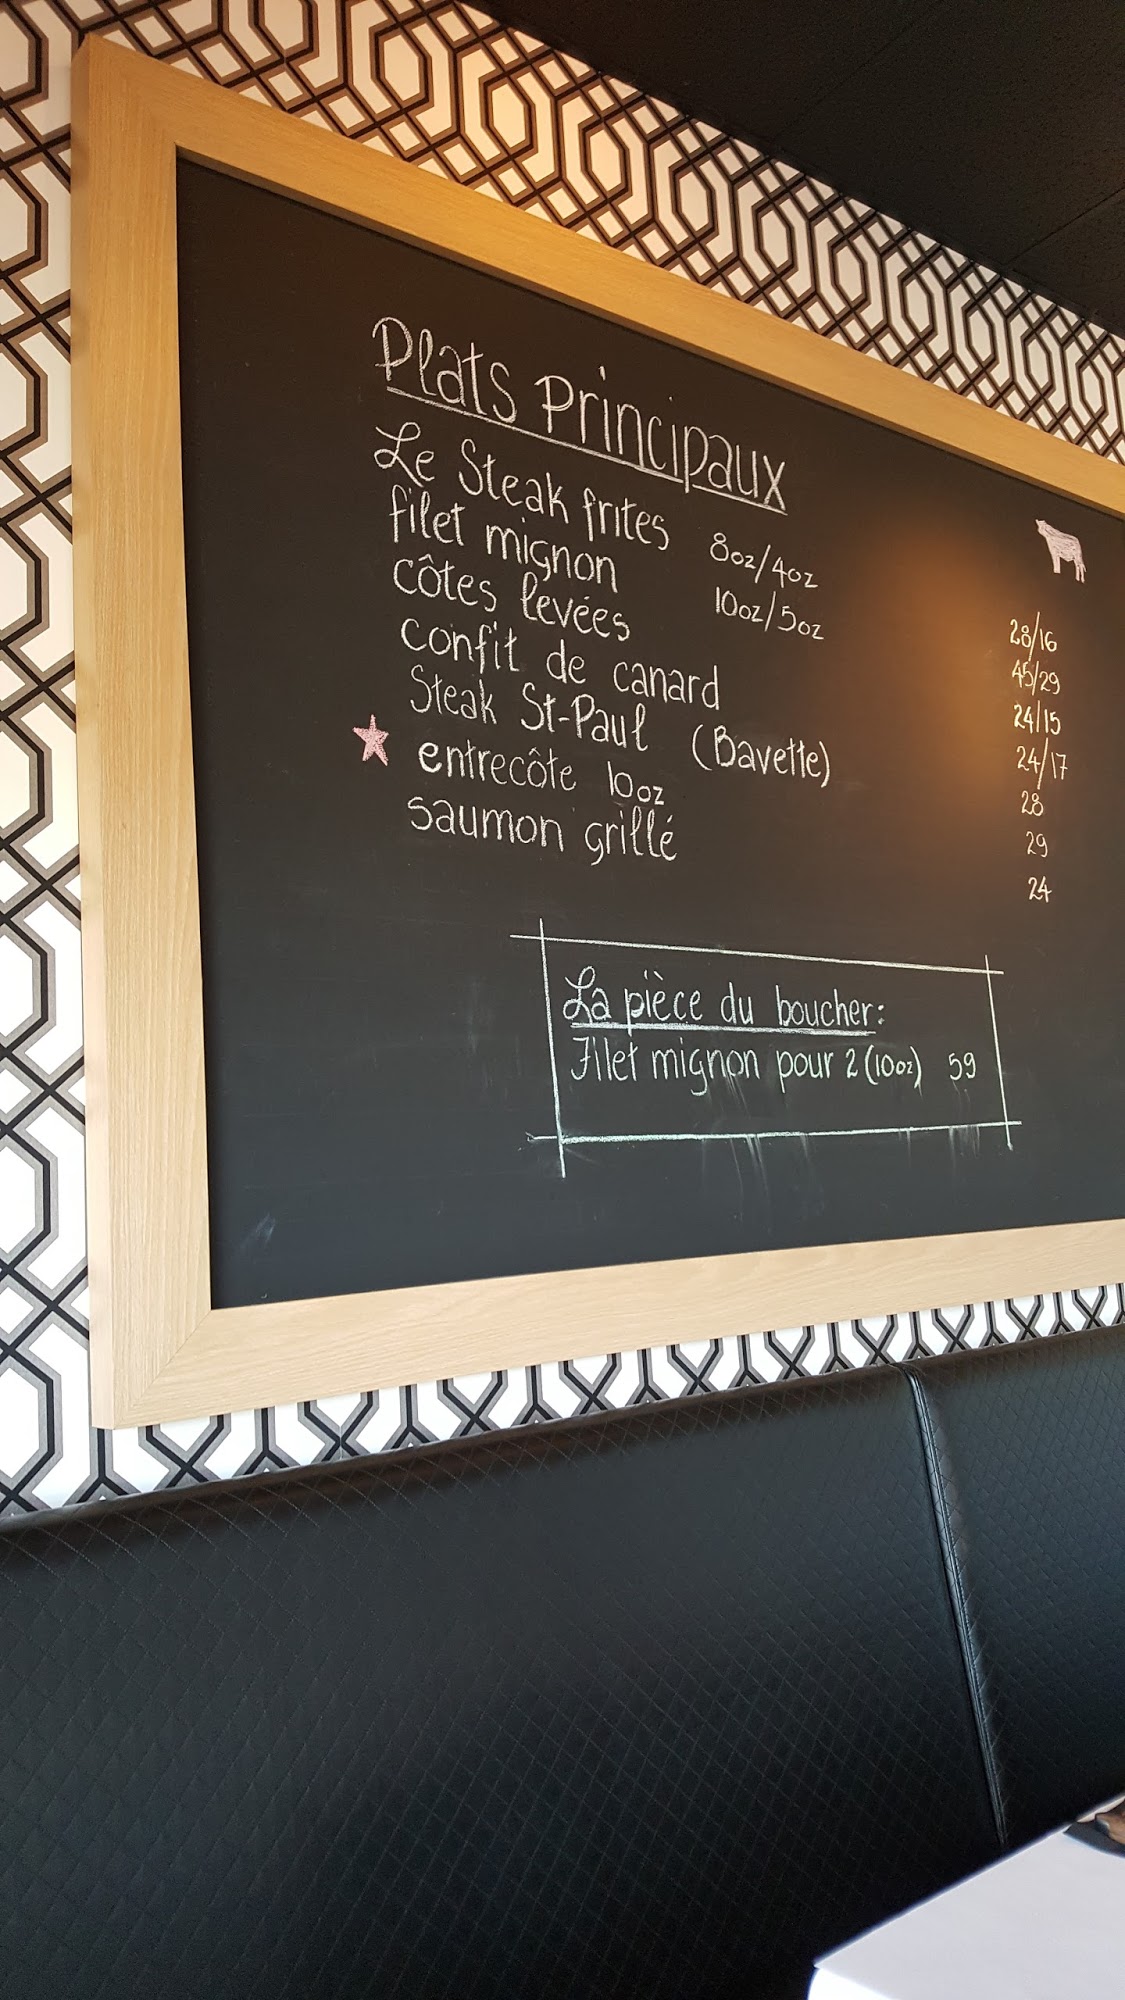 Plats Principaux
Le Steak frites 8oz/4oz 28/16
filet mignon 10oz/5oz 45/29
côtes levées 24/15
confit de canard 24/17
Steak St-Paul (Bavette) 28
entrecôte 10oz 29
saumon grillé 24
La pièce du boucher:
Filet mignon pour 2 (10oz) 59